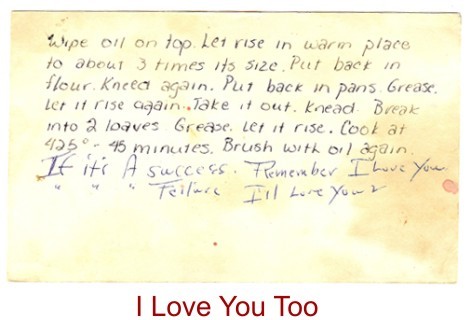 Wipe oil on top. Let rise in warm place
to about 3 times its size. Put back in
flour. Kneed again. Put back in pans. Grease.
Let it rise again. Take it out. Knead. Break
into 2 loaves Grease. Let it rise. Cook at
425° - 45 minutes. Brush with oil again.
If it's A success. Remember I Love You
" " " Failure I'll Love You 2
I Love You Too